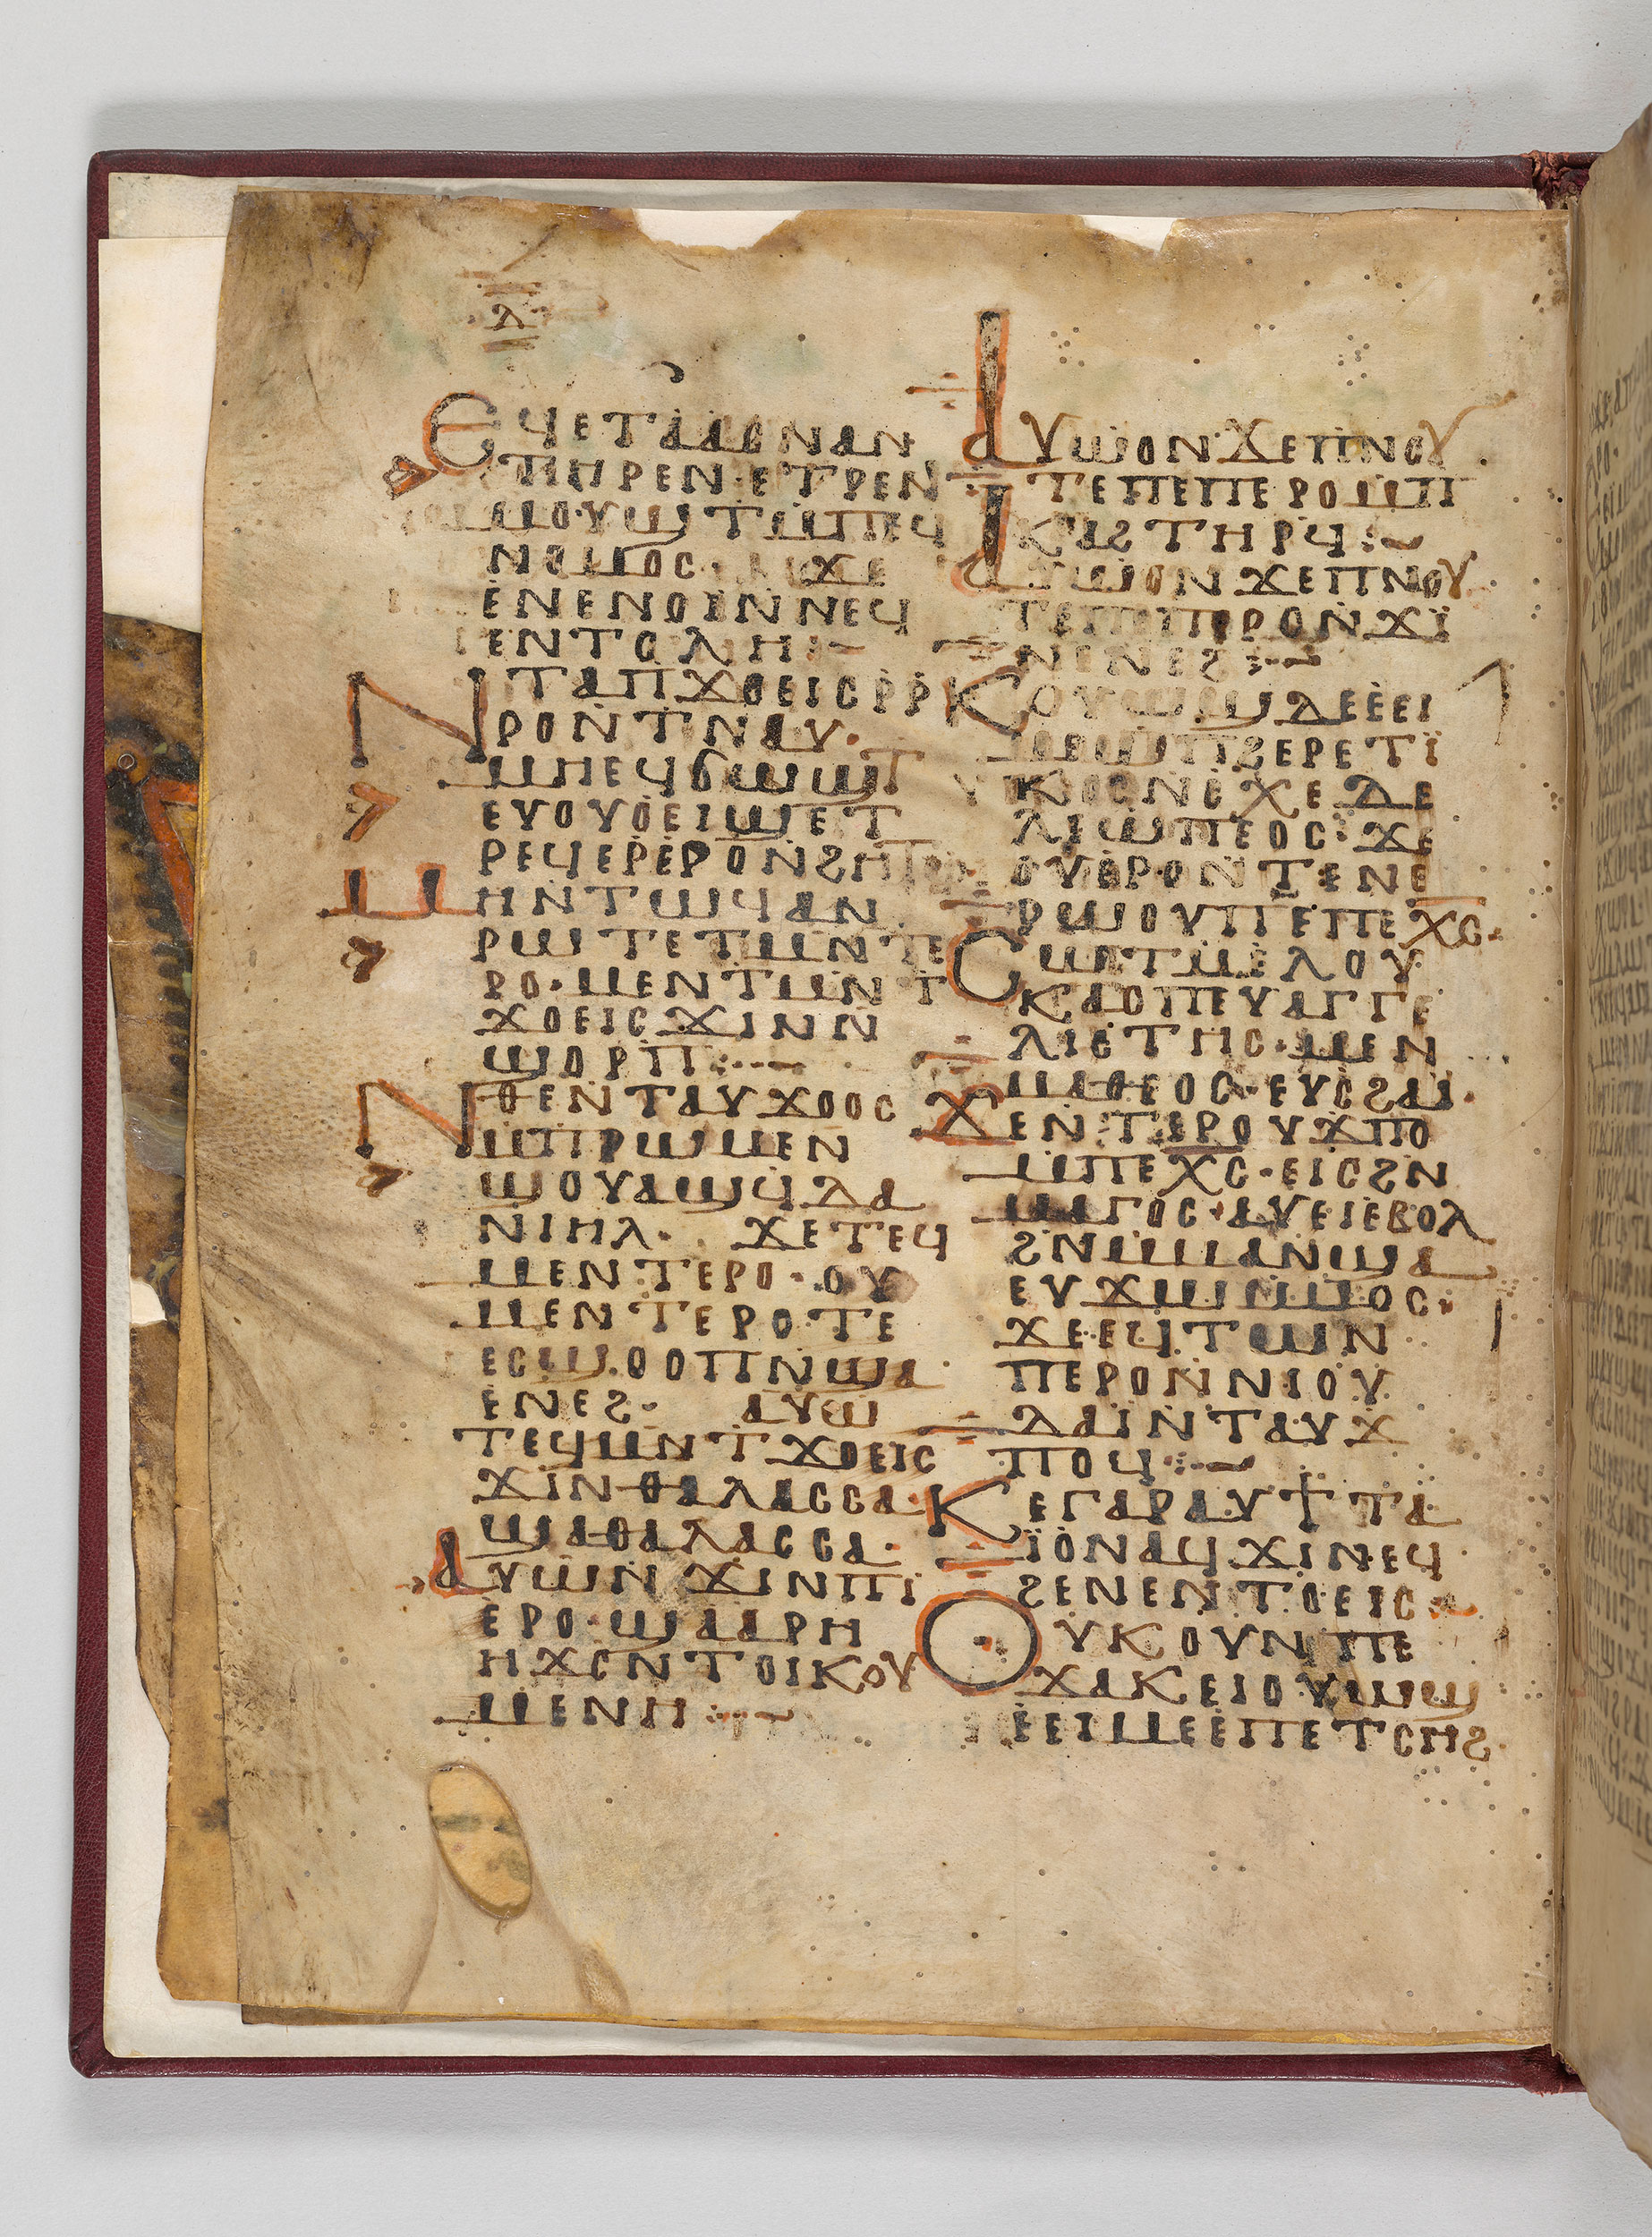 ⲇ
ⲉϥⲉⲧⲁⲁⲥⲛⲁⲛ
ⲧⲏⲣⲉⲛ·ⲉⲧⲣⲉⲛ
ⲙⲟⲩϣⲧⲙⲡⲉϥ
ⲛⲟⲙⲟⲥ· ϫⲉ
ⲉⲛⲉⲛⲟⲓⲛⲛⲉϥ
ⲉⲛⲧⲟⲗⲏ:~
ⲛⲧⲁⲡϫⲟⲉⲓⲥⲣⲣ
ⲣⲟⲛⲧⲛⲁⲩ·
ⲙⲛⲉϥϭⲱϣⲧ
ⲉⲩⲟⲩⲟⲉⲓϣⲉⲧ
ⲣⲉϥⲉⲣⲉⲣⲟⲛϩⲏⲧϥ
ⲙⲏⲛⲧⲱϥⲁⲛ
ⲣⲱⲧⲉⲧⲙⲛⲧⲉ
ⲣⲟ·ⲙⲉⲛⲧⲙⲛⲧ
ϫⲟⲉⲓⲥϫⲓⲛⲛ
ϣⲟⲣⲡ:~
ⲛⲑⲉⲛⲧⲁⲩϫⲟⲟⲥ
ⲙⲡⲣⲱⲙⲉⲛ
ϣⲟⲩⲁϣϥⲇⲁ
ⲛⲓⲏⲗ· ϫⲉⲧⲉϥ
ⲙⲉⲛⲧⲉⲣⲟ·ⲟⲩ
ⲙⲉⲛⲧⲉⲣⲟⲧⲉ
ⲉⲥϣⲟⲟⲡⲛϣⲁ
ⲉⲛⲉϩ· ⲁⲩⲱ
ⲧⲉϥⲙⲛⲧϫⲟⲉⲓⲥ
ϫⲓⲛⲑⲁⲗⲁⲥⲥⲁ·
ϣⲁⲑⲁⲗⲁⲥⲥⲁ·
ⲁⲩⲱⲛϫⲓⲛⲡⲓ
ⲉⲣⲟ·ϣⲁⲁⲣⲏ
ⲏϫⲥⲛⲧⲟⲓⲕⲟⲩ
ⲙⲉⲛⲏ:~
ⲁⲩⲱⲟⲛ·ϫⲉⲡⲛⲟⲩ
ⲧⲉⲡⲉⲡⲉⲣⲟⲙⲡ
ⲕⲁϩⲧⲏⲣϥ:~
ⲁⲩⲱⲟⲛϫⲉⲡⲛⲟⲩ
ⲧⲉⲡⲉⲡⲉⲣⲟⲛϫⲓ̈
ⲛⲉⲛⲉϩ:~
ⲕⲟⲩⲱϣⲇⲉⲉⲉⲓ
ⲙⲉⲱⲡϩⲉⲣⲉⲧⲓ̈
ⲕⲟⲥⲛϭϫⲉⲇⲉ
ⲗⲓⲱⲡⲉⲟⲥ·ϫⲉ
ⲟⲩⲉⲣⲟⲛⲧⲉⲛⲉ
ⲣⲱⲟⲩⲡⲉⲡⲉⲭ̅ⲥ̅·
ⲥⲱⲧⲙⲉⲗⲟⲩ
ⲕⲁⲟⲡⲉⲩⲁⲅⲅⲉ
ⲗⲓⲥⲧⲏⲥ·ⲙⲉⲛ
ⲙⲁⲑⲉⲟⲥ·ⲉⲩⲥϩⲁⲓ·
ϫⲉⲛⲧⲉⲣⲟⲩϫⲡⲟ
ⲙⲡⲉⲭ̅ⲥ̅·ⲉⲓⲥϩⲛ
ⲙⲁⲅⲟⲥ·ⲁⲩⲉⲓⲉⲃⲟⲗ
ϩⲛⲙⲙⲁⲛϣⲁ
ⲉⲩϫⲱⲙⲙⲟⲥ·
ϫⲉⲉϥⲧⲱⲛ
ⲡⲉⲣⲟⲛⲛⲓⲟⲩ
ⲇⲁⲓ̈ⲛⲧⲁⲩϫ
ⲡⲟϥ:~
ⲕⲉⲅⲁⲣⲁⲩϯⲧⲁ
ⲓ̈ⲟⲛⲁϥϫⲓⲛⲉϥ
ϩⲉⲛⲉⲛⲧⲟⲉⲓⲥ~
ⲟⲩⲕⲟⲩⲛⲡⲉ
ϫⲁⲕⲉⲓⲟⲩⲱϣ
ⲉⲉⲓⲙⲉⲉⲡⲉⲧⲥⲏϩ·